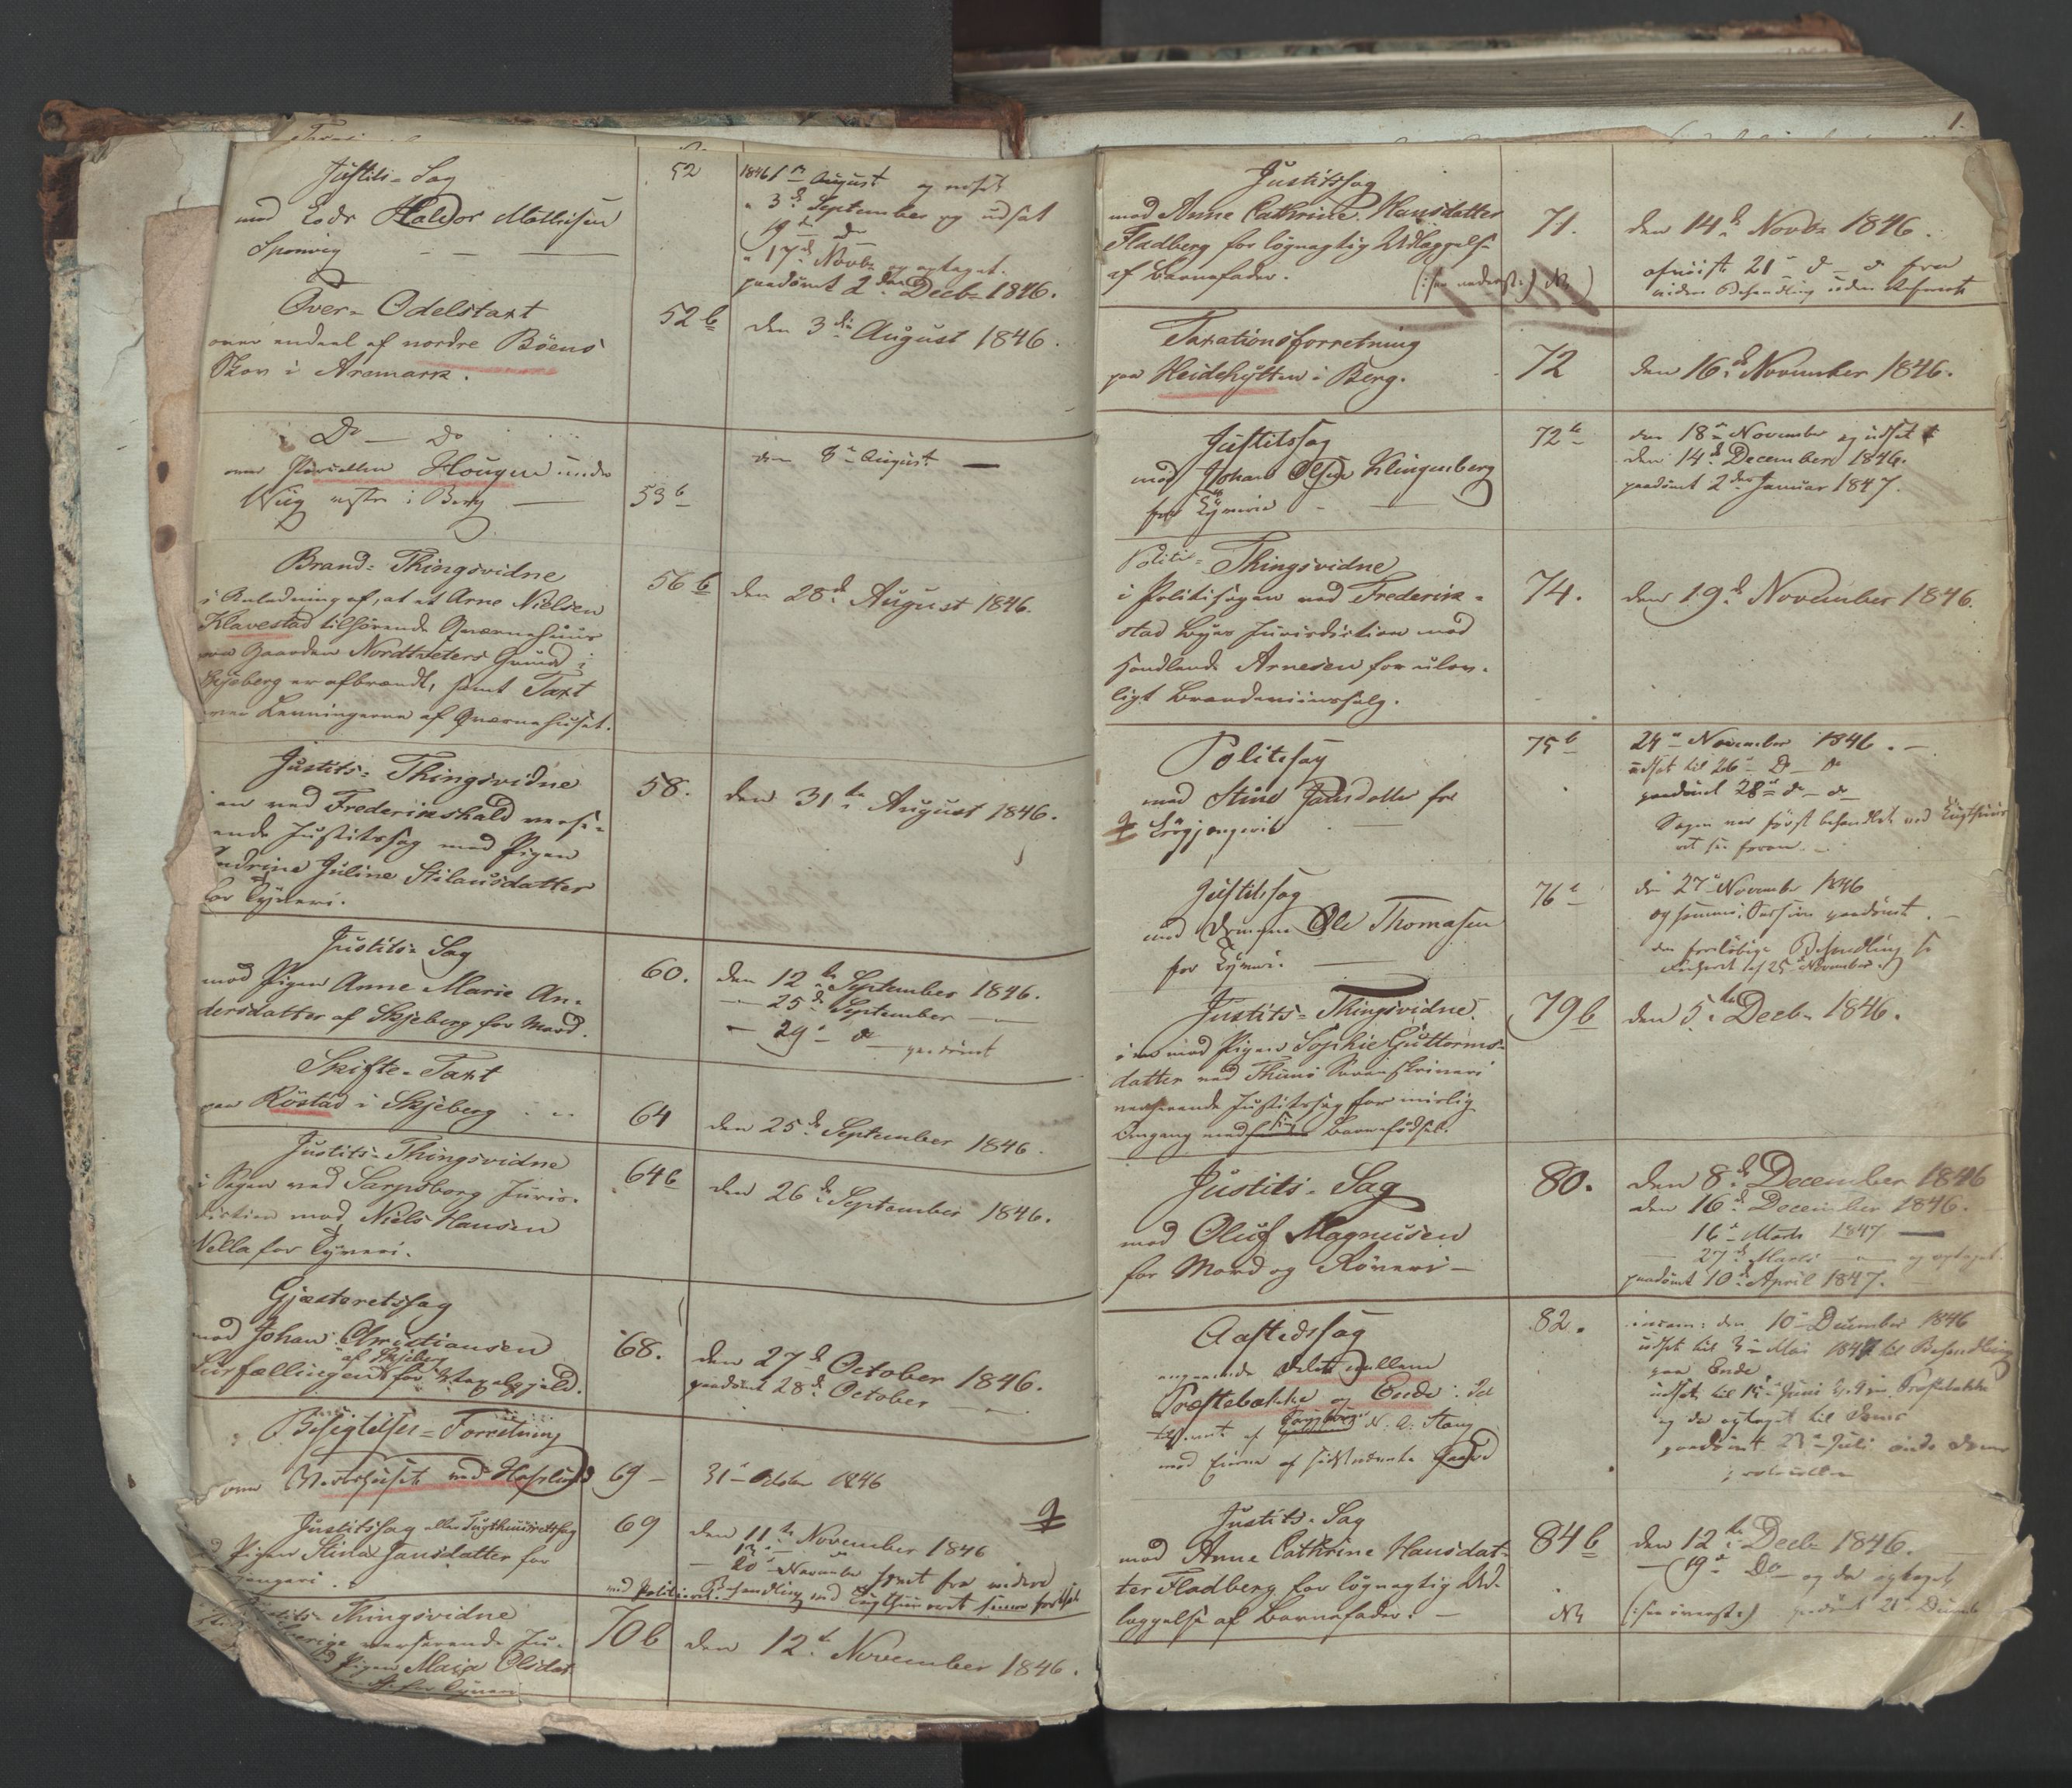 Justits-Sag
mod Haldor Mathisen
Sponvig
52
1846 1 August og udsat
" 3 September og udsat
19 do
" 17 Novbr og optaget.
paadömt 2 Decbr 1846.
Over-Odelstaxt
over endeel af nordre Böens
Skov i Aremark.
52 b
den 3die August 1846.
Do — Do
over Parcellen Hougen under
Wiig i Berg
53 b
den 8 August
Brand-Thingsvidne
i Anledning af, at et Arne Nielsen
Klavestad tilhörende Qværnehuus
paa Gaarden Nordtveters Grund i
Skjeberg er afbrændt, samt Taxt
over Levningerne af Qværnehuset.
56 b
den 28d August 1846.
Justits-Thingsvidne
i en ved Frederikshald verse-
rende Justitssag mod Pigen
Juline Stilausdatter
for Tyveri.
58.
den 31te August 1846.
Justits-Sag
mod Pigen Anne Marie An-
dersdatter af Skjeberg for Mord.
60.
den 12te September 1846.
— 25d September —
— 29 do paadömt
Skifte-Taxt
paa Röstad i Skjeberg
64
den 25d September 1846.
Justits-Thingsvidne
i Sagen ved Sarpsborg Juris-
diction mod Niels Hansen
Nella for Tyveri.
64 b
den 26d September 1846.
Gjæsteretssag
mod Johan Christiansen
af Skjeberg
for
68.
den 27d October 1846.
paadömt 28d October
Besigtelses-Forretning
over Værtshuset ved Haslund
69
31 October 1846
Justitssag eller Tugthuusretssag
mod Pigen Stina Jansdatter for
69
den 11te November 1846
13
— 20 November hævet fra videre
Behandling ved Tugthuusret
Thingsvidne
verserende Ju-
Pigen Maja Olsdat
for Tyveri
70 b
den 12te November 1846.
1.
Justitssag
mod Anne Cathrine Hansdatter
Fladberg for lögnagtig Udlæggelse
af Barnefader.
(: see nederst :) NB
71.
den 14d Novbr 1846.
afviist 21 d — d fra
videre Behandling uden
Taxationsforretning
paa Heidehytten i Berg.
72
den 16d November 1846.
Justitssag
mod Johan Olsen Klingenberg
for Tyverie
72 b
den 18 November og udsat
den 14d December 1846.
paadömt 2den Januar 1847.
Politi-Thingsvidne
i Politisagen ved Frederik-
stad Byes Jurisdiction mod
Handlende Arnesen for ulov-
ligt Brændeviinssalg.
74.
den 19d November 1846.
Politisag
mod Stine Jansdatter for
Lösgjængerie
75 b
24 November 1846.
udsat til 26 D — o
paadömt 28 d — o
Sagen var först behandlet ved Tugthuus
ret see foran.
Justitssag
mod Drengen Ole Thomasen
for Tyveri.
76 b
den 27 November 1846
og samme Session paadömt.
den foreløbige Behandling see
af 25 November
Justits-Thingsvidne
i en mod Pigen Sophie Guttorms-
datter ved Thuns Sorenskriveri
verserende Justitssag for uvislig
Omgang med sin Barnefödsel.
79 b
den 5te Decbr 1846.
Justits-Sag
mod Oluf Magnusen
for Mord og Röveri
80.
den 8d December 1846
den 16d December 1846.
16 Marts 1847
27 Marts og optaget
paadömt 10d April 1847.
Aastedssag
angaaende Delet mellem
Præstebakke og Ende
af N. A. Stang
mod Eieren af sidstnævnte Gaard
82.
incam: den 10 December 1846
udsat til 3 Mai 1847 til Behandling
paa Ende
udsat til
og da optaget til Doms
paadömt Juli
Justits-Sag
mod Anne Cathrine Hansdat-
ter Fladberg for lögnagtig Ud-
læggelse af Barnefader.
84 b
NB
den 12te Decbr 1846.
— 19 Do og da optaget
(: see överst :) paadömt 21